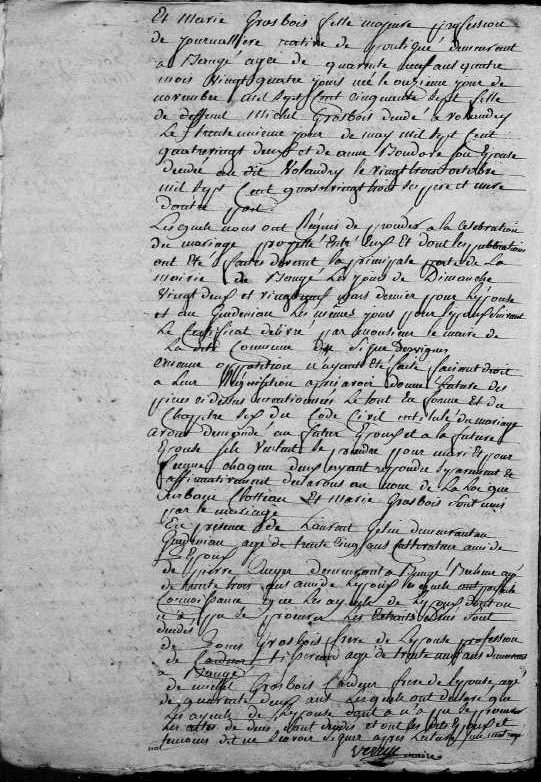 Et Marie Grosbois fille majeure profession
de journalliere native de pontigné demeurant
a Baugé agee de quarante neuf ans quatre
mois vingt quatre jours né le onzieme jour de
novembre mil sept cent cinquante sept fille
de deffent Michel Grosbois décédé a volandry
Le trente unieme jour de may mil sept cent
quatre vingt deux et de anne son Epouse
décédé au dit Volandry le vingt trois octobre
mil sept cent quatre vingt trois ses pere et mere
d'autre part
Lesquels nous ont Requis de proceder a la Celebration
du mariage projetté Entre Eux Et dont les publications
ont Eté faites devant la principale porte de La
mairie de Baugé Les jours de Dimanche
vingt deux et vingt neuf mars dernier pour L'epouse
et au Guedeniau Les memes jours pour l'epoux suivant
Le Certificat delivré par monsieur le maire de
La dite Commune
aucune opposition n'ayant Eté faite faisant droit
a Leur Requisition apres avoir donné Lecture des
pieces ci dessus mentionnees Le tout En forme Et du
Chapitre six du Code Civil intitulé du mariage
avons demandé au futur Epoux et a la future
Epouse s'ils veulent se prendre pour mari Et pour
femme chacun deux ayant repondu separement Et
affirmativement declarons au nom de La Loi que
Urbain Et Marie Grosbois sont unis
par le mariage
En presence de Laurent demeurant au
Guedeniau agé de trente cinq ans Cultivateur ami de
L'Epoux
de pierre demeurant a Baugé agé
de trente trois ans ami de L'epoux
Connoissance que Les ayeuls de L'epoux dont on
n'a pu se procurer Les Extraits de deces sont
décédés
de Grosbois frere de L'epouse profession
de agé de trente neuf ans demeurant
a Baugé
de Grosbois frere de L'epouse agé
de quarante deux ans Lesquels ont declaré que
Les ayeuls de L'epouse dont on n'a pu se procurer
Les actes de deces sont décédés et ont Les dits Epoux et
temoins dit ne Savoir signer apres Lecture
maire